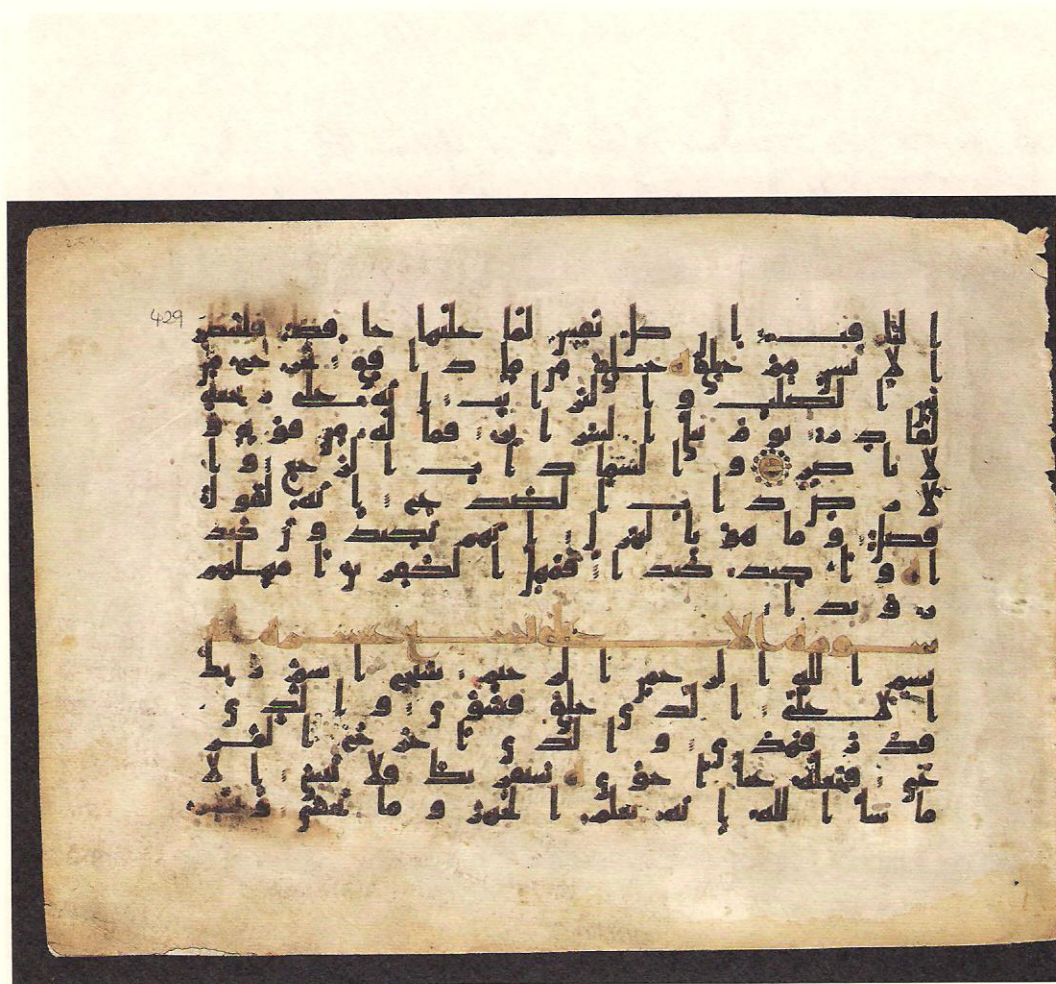 429
الثاقب ان كل نفس لما عليها حافظ فلينظر
الانسن مم خلق خلق من ما دافق يخرج من
بين الصلب والترائب انه على رجعه
لقادر يوم تبلى السرائر فما له من قوة و
لا ناصر والسما ذات الرجع وا
لارض ذات الصدع انه لقول
فصل وما هو بالهزل انهم يكيدون كيد
ا واكيد كيدا فمهل الكفرين امهلهم
رويدا
سورة الاعلى تسع عشرة
بسم الله الرحمن الرحيم سبح اسم ربك
الاعلى الذى خلق فسوى والذى
قدر فهدى والذى اخرج المر
عى فجعله غثا احوى سنقرئك فلا تنسى الا
ما شا الله انه يعلم الجهر وما يخفى ونيسر